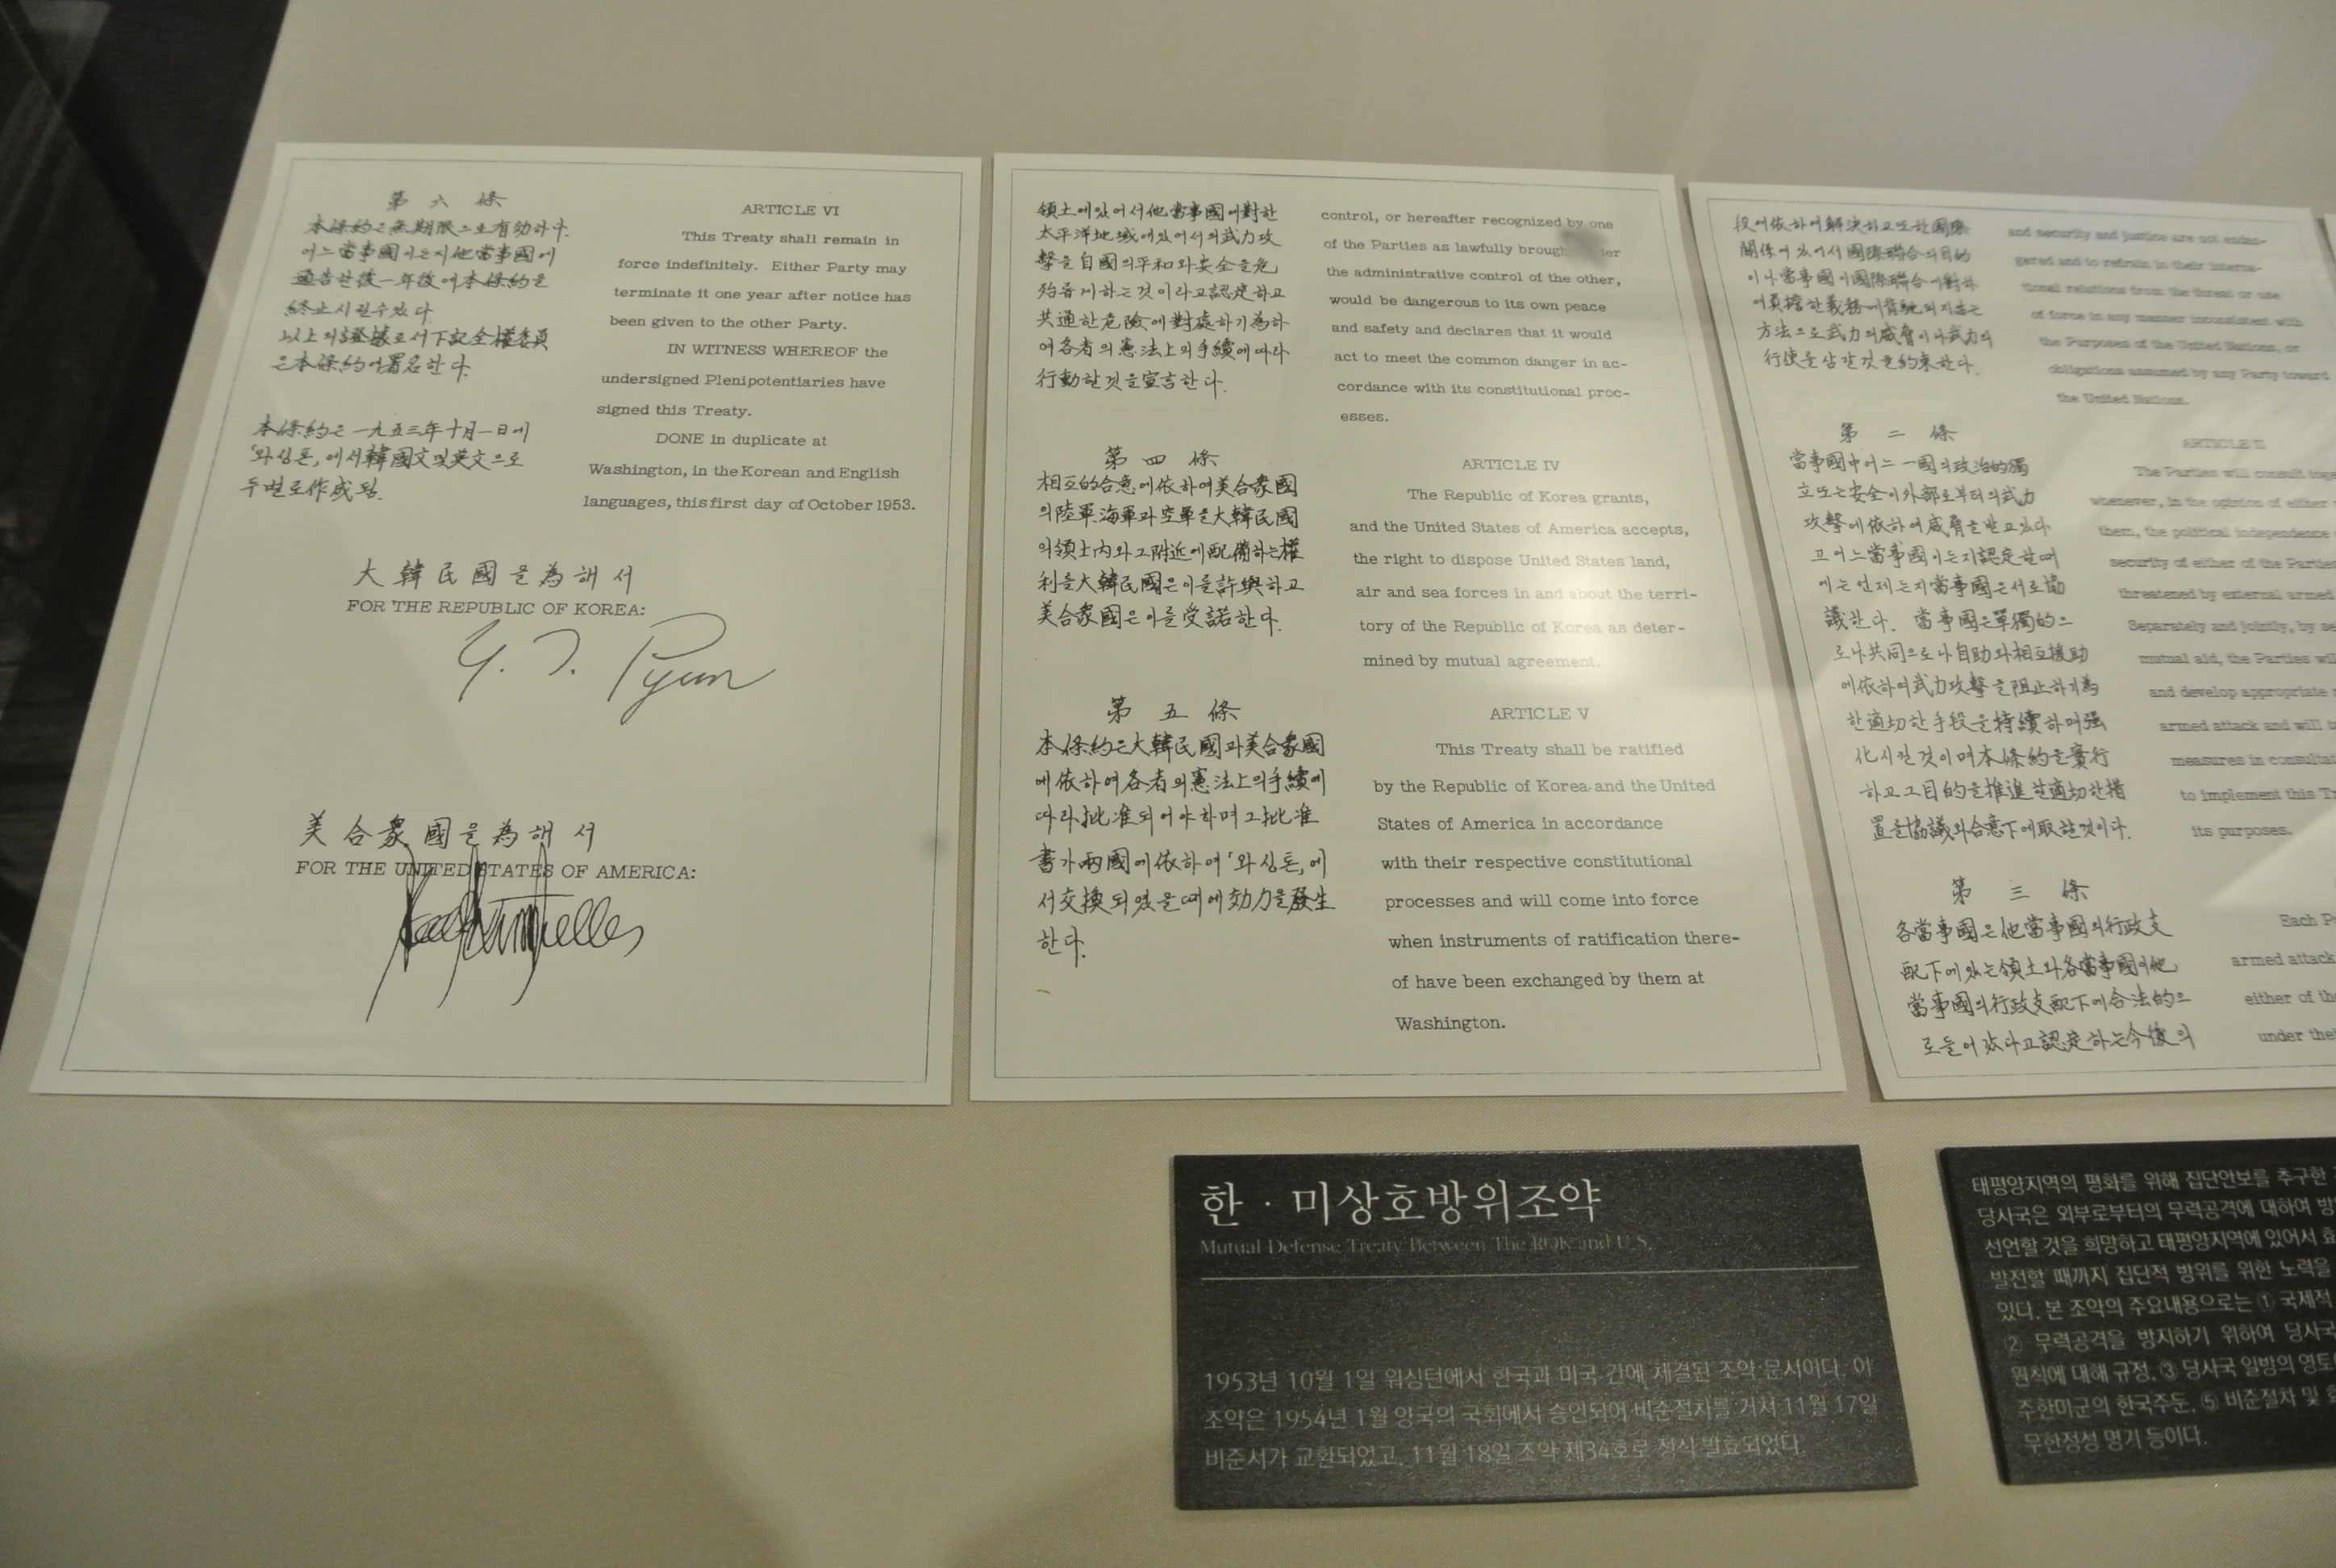 第 六 條
本條約은無期限으로有効하다.
어느當事國이든지他當事國에
通告한後一年後에本條約을
終止시킬수있다.
以上의證據로서下記全權委員
은本條約에署名한다.
本條約은一九五三年十月一日에
「와싱톤」에서韓國文및英文으로
두벌로作成됨.
ARTICLE VI
This Treaty shall remain in
force indefinitely. Either Party may
terminate it one year after notice has
been given to the other Party.
IN WITNESS WHEREOF the
undersigned Plenipotentiaries have
signed this Treaty.
DONE in duplicate at
Washington, in the Korean and English
languages, this first day of October 1953.
大韓民國을為해서
FOR THE REPUBLIC OF KOREA:
Y. T. Pyun
美合衆國을為해서
FOR THE UNITED STATES OF AMERICA:
領土에있어서他當事國에對한
太平洋地域에있어서의武力攻
擊을自國의平和와安全을危
殆롭게하는것이라고認定하고
共通한危險에對處하기為하
여各者의憲法上의手續에따라
行動할것을宣言한다.
第 四 條
相互的合意에依하여美合衆國
의陸軍海軍과空軍을大韓民國
의領土內와그附近에配備하는權
利를大韓民國은이를許與하고
美合衆國은이를受諾한다.
第 五 條
本條約은大韓民國과美合衆國
에依하여各者의憲法上의手續에
따라批准되어야하며그批准
書가兩國에依하여「와싱톤」에
서交換되었을때에効力을發生
한다.
control, or hereafter recognized by one
of the Parties as lawfully brought
the administrative control of the other,
would be dangerous to its own peace
and safety and declares that it would
act to meet the common danger in ac-
cordance with its constitutional proc-
esses.
ARTICLE IV
The Republic of Korea grants,
and the United States of America accepts,
the right to dispose United States land,
air and sea forces in and about the terri-
tory of the Republic of Korea as deter-
mined by mutual agreement.
ARTICLE V
This Treaty shall be ratified
by the Republic of Korea and the United
States of America in accordance
with their respective constitutional
processes and will come into force
when instruments of ratification there-
of have been exchanged by them at
Washington.
段에依하여解決하고또한國際
關係에있어서國際聯合의目的
이나當事國이國際聯合에對하
여負擔한義務에背馳되지않는
方法으로武力의威脅이나武力의
行使를삼갈것을約束한다.
第 二 條
當事國中어느一國의政治的獨
立또는安全이外部로부터의武力
攻擊에依하여威脅을받고있다
고어느當事國이든지認定할때
에는언제든지當事國은서로協
議한다. 當事國은單獨的으
로나共同으로나自助와相互援助
에依하여武力攻擊을阻止하기為
한適切한手段을持續하며强
化시킬것이며本條約을實行
하고그目的을推進할適切한措
置를協議와合意下에取할것이다.
第 三 條
各當事國은他當事國의行政支
配下에있는領土와各當事國이他
當事國의行政支配下에合法的으
로들어갔다고認定하는今後의
and security and justice are not endan-
gered and to refrain in their interna-
tional relations from the threat or use
of force in any manner inconsistent with
the Purposes of the United Nations, or
obligations assumed by any Party toward
the United Nations.
ARTICLE II
The Parties will consult
whenever, in the opinion of either
them, the political independence
security of either of the Parties
threatened by external armed
Separately and jointly, by
mutual aid, the Parties
and develop appropriate
armed attack and will
measures in
to implement this
its purposes.
Each
armed attack
either of
under
한·미상호방위조약
Mutual Defense Treaty Between The ROK and U.S.
1953년 10월 1일 워싱턴에서 한국과 미국 간에 체결된 조약 문서이다. 이
조약은 1954년 1월 양국의 국회에서 승인되어 비준절차를 거쳐 11월 17일
비준서가 교환되었고, 11월 18일 조약 제34호로 정식 발효되었다.
태평양지역의 평화를 위해 집단안보를 추구한
당사국은 외부로부터의 무력공격에 대하여
선언할 것을 희망하고 태평양지역에 있어서
발전할 때까지 집단적 방위를 위한 노력을
있다. 본 조약의 주요내용으로는 ① 국제적
② 무력공격을 방지하기 위하여 당사국
원칙에 대해 규정, ③ 당사국 일방의
주한미군의 한국주둔, ⑤ 비준절차 및
무한정성 명기 등이다.